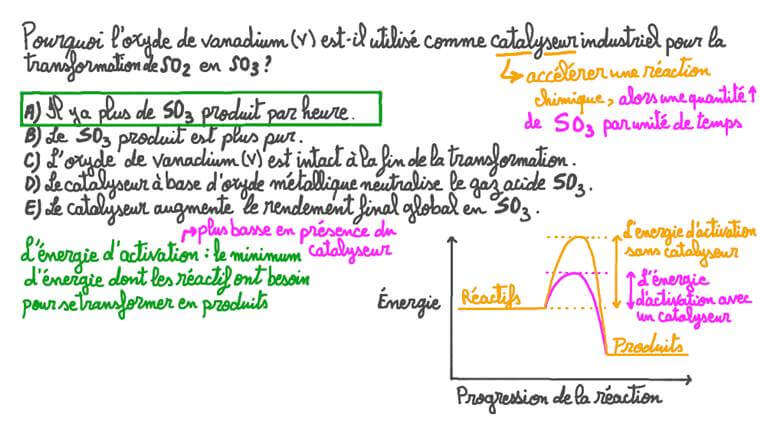 Pourquoi l'oxyde de vanadium (V) est-il utilisé comme catalyseur industriel pour la
transformation de SO2 en SO3 ?
↳ accélérer une réaction
chimique, alors une quantité ↑
de SO3 par unité de temps
A) Il y a plus de SO3 produit par heure.
B) Le SO3 produit est plus pur.
C) L'oxyde de vanadium (V) est intact à la fin de la transformation.
D) Le catalyseur à base d'oxyde métallique neutralise le gaz acide SO3.
E) Le catalyseur augmente le rendement final global en SO3.
↱ plus basse en présence du
catalyseur
L'énergie d'activation : le minimum
d'énergie dont les réactif ont besoin
pour se transformer en produits
Énergie
Réactifs
L'énergie d'activation
sans catalyseur
L'énergie
d'activation avec
un catalyseur
Produits
Progression de la réaction